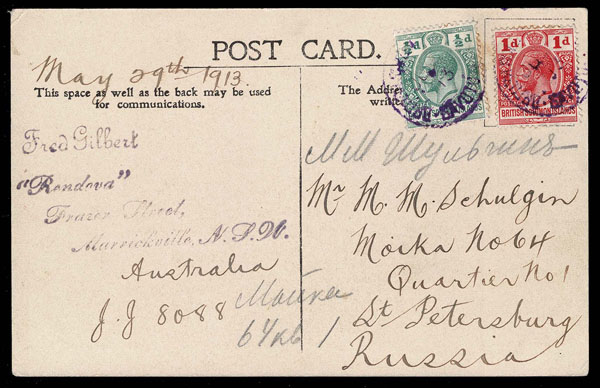 POST CARD.
½d ½d
1d 1d
BRITISH SOLOMON ISLANDS
May 29th 1913.
This space as well as the back may be used
for communications.
The Addre
writt
Fred Gilbert
"Rendova"
Frazer Street,
Marrickville, N.S.W.
Australia
J.J 8088
М М Шульгину
Mr M. M. Schulgin
Moika No 64
Quartier No 1
St Petersburg
Russia
Мойка
64 кв 1